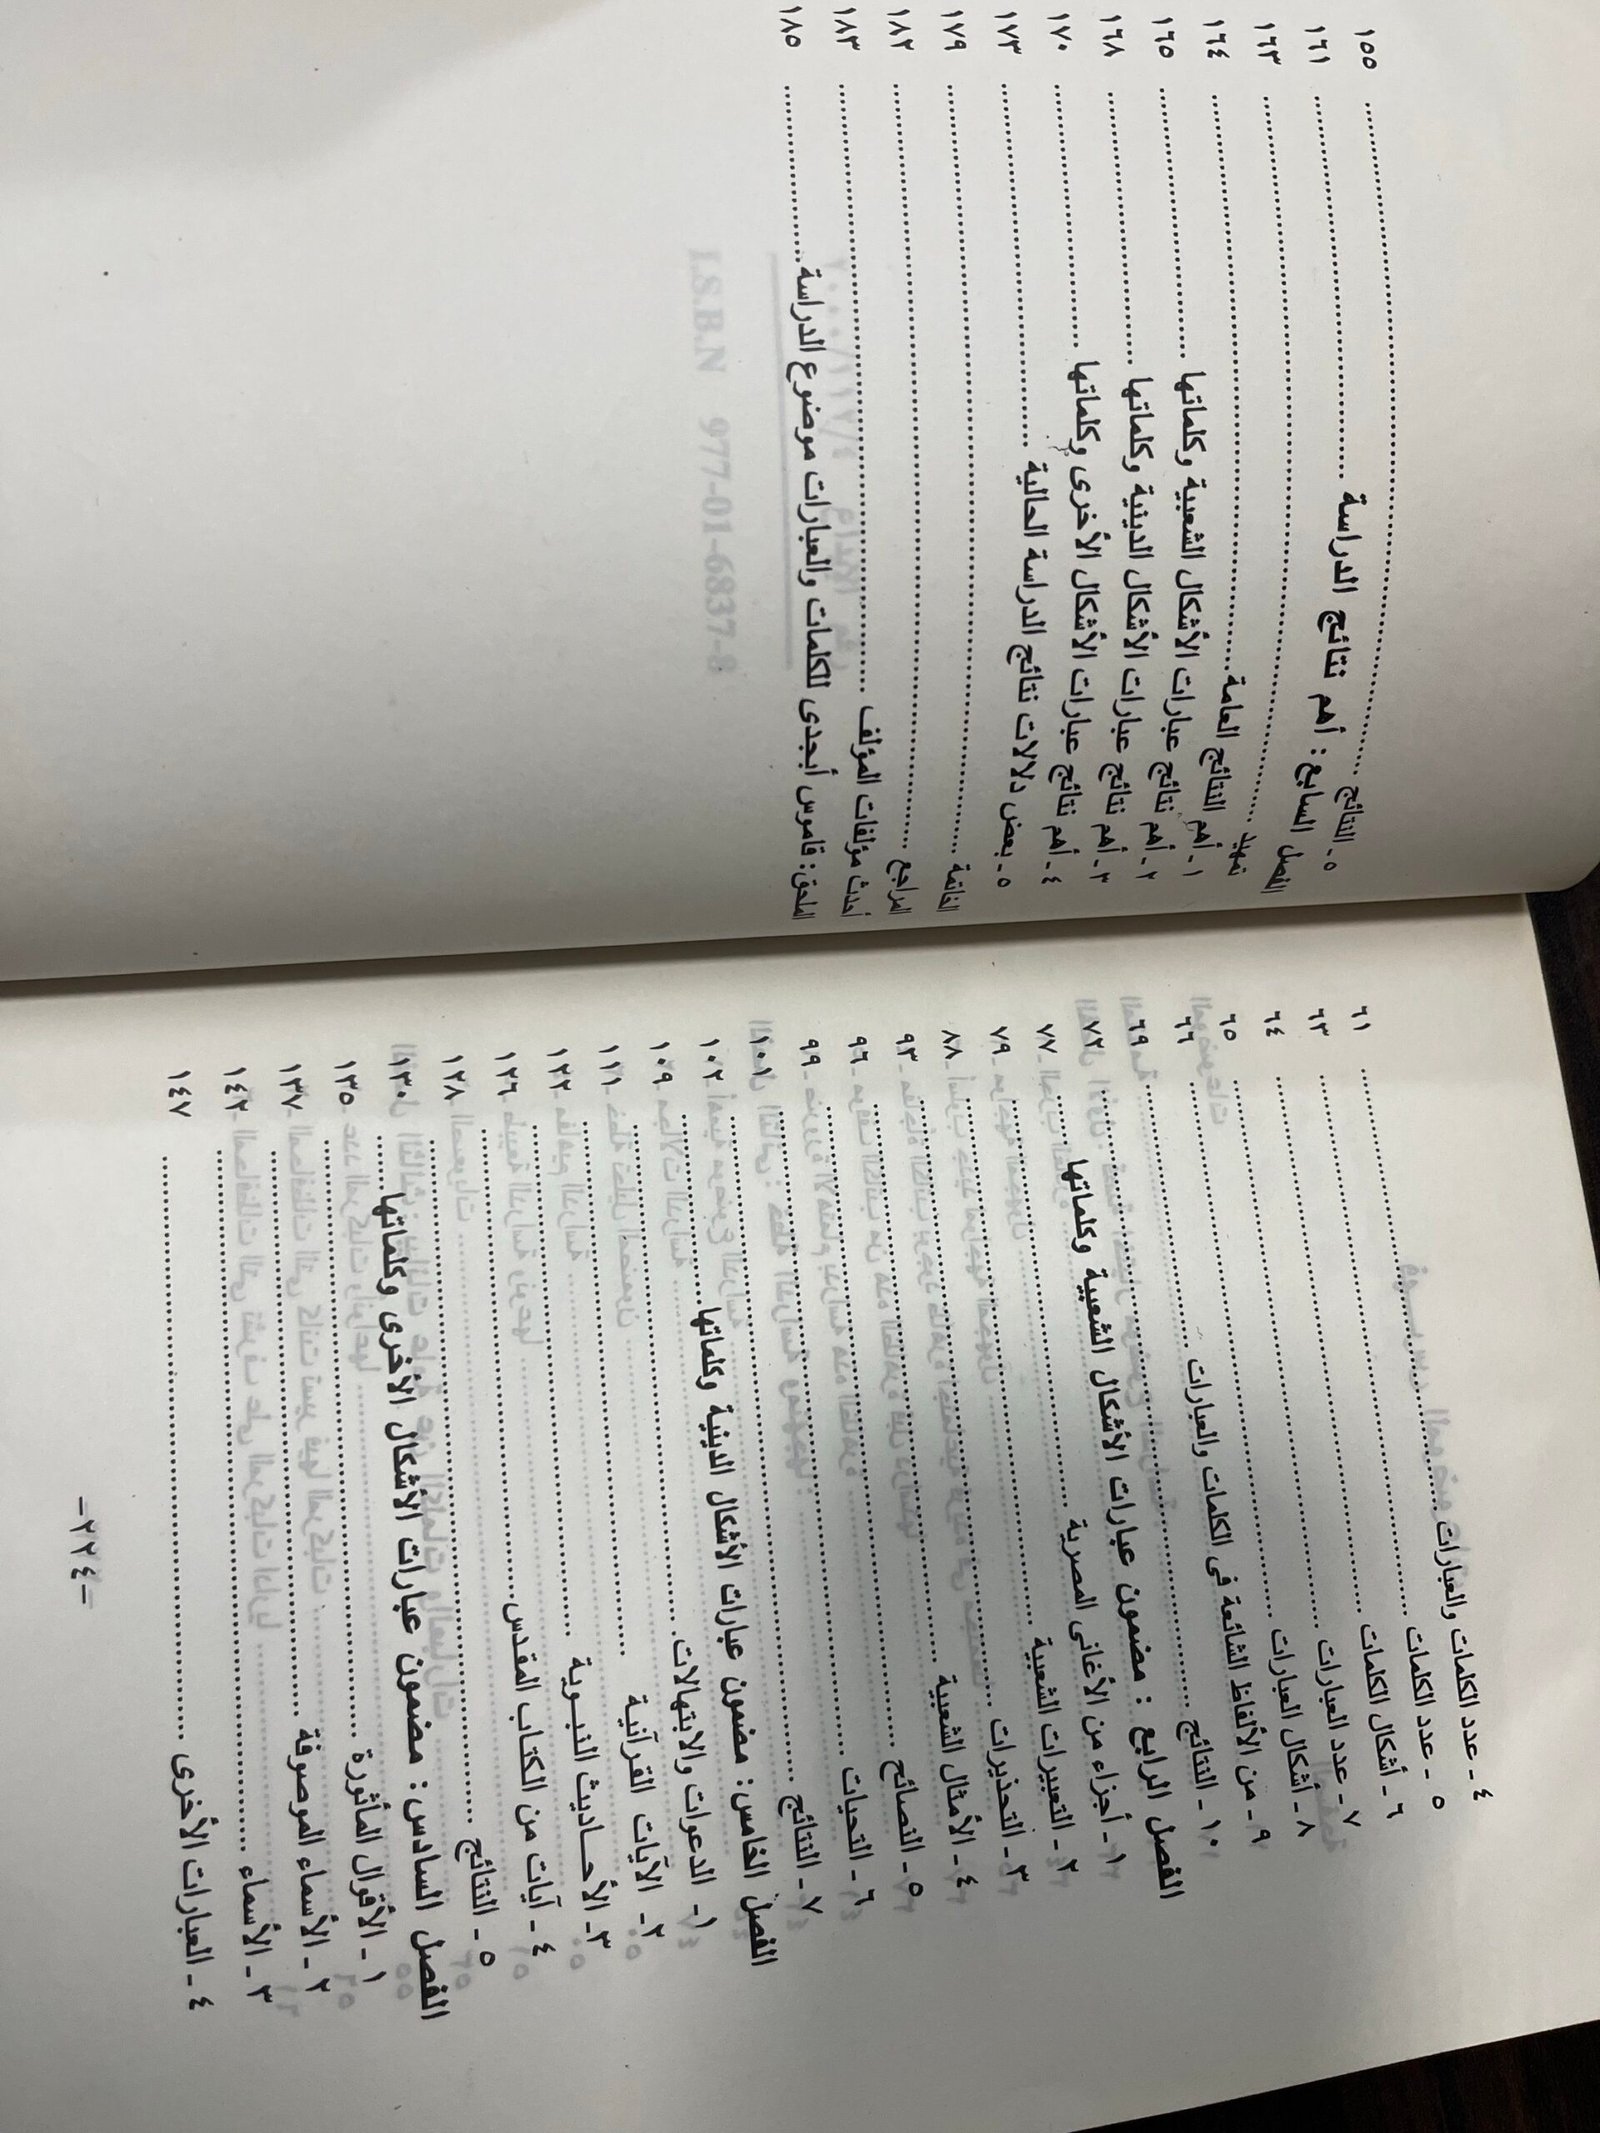 ٤ - عدد الكلمات والعبارات ٦١
٥ - عدد الكلمات ٦٣
٦ - أشكال الكلمات ٦٤
٧ - عدد العبارات ٦٥
٨ - أشكال العبارات ٦٦
٩ - من الألفاظ الشائعة فى الكلمات والعبارات
١٠ - النتائج ٦٩
الفصل الرابع : مضمون عبارات الأشكال الشعبية وكلماتها ٧٢
١ - أجزاء من الأغانى المصرية ٧٧
٢ - التعبيرات الشعبية ٧٩
٣ - التحذيرات ٨٨
٤ - الأمثال الشعبية ٩٣
٥ - النصائح ٩٦
٦ - التحيات ٩٩
٧ - النتائج ١٠١
الفصل الخامس: مضمون عبارات الأشكال الدينية وكلماتها ١٠٢
١- الدعوات والابتهالات ١٠٩
٢- الآيات القرآنية ١١١
٣- الأحاديث النبوية ١٢٢
٤ - آيات من الكتاب المقدس ١٢٦
٥ - النتائج ١٢٨
الفصل السادس: مضمون عبارات الأشكال الأخرى وكلماتها ١٣٠
١ - الأقوال المأثورة ١٣٥
٢ - الأسماء الموصوفة ١٣٧
٣ - الأسماء ١٤٣
٤ - العبارات الأخرى ١٤٧
-٢٢٤-
٥ - النتائج ١٥٥
الفصل السابع: أهم نتائج الدراسة ١٦١
تمهيد ١٦٣
١ - أهم النتائج العامة ١٦٤
٢ - أهم نتائج عبارات الأشكال الشعبية وكلماتها ١٦٥
٣ - أهم نتائج عبارات الأشكال الدينية وكلماتها ١٦٨
٤ - أهم نتائج عبارات الأشكال الأخرى وكلماتها ١٧٠
٥ - بعض دلالات نتائج الدراسة الحالية ١٧٣
الخاتمة ١٧٩
المراجع ١٨٢
أحدث مؤلفات المؤلف ١٨٣
الملحق: قاموس أبجدى للكلمات والعبارات موضوع الدراسة ١٨٥
I.S.B.N 977-01-6837-8